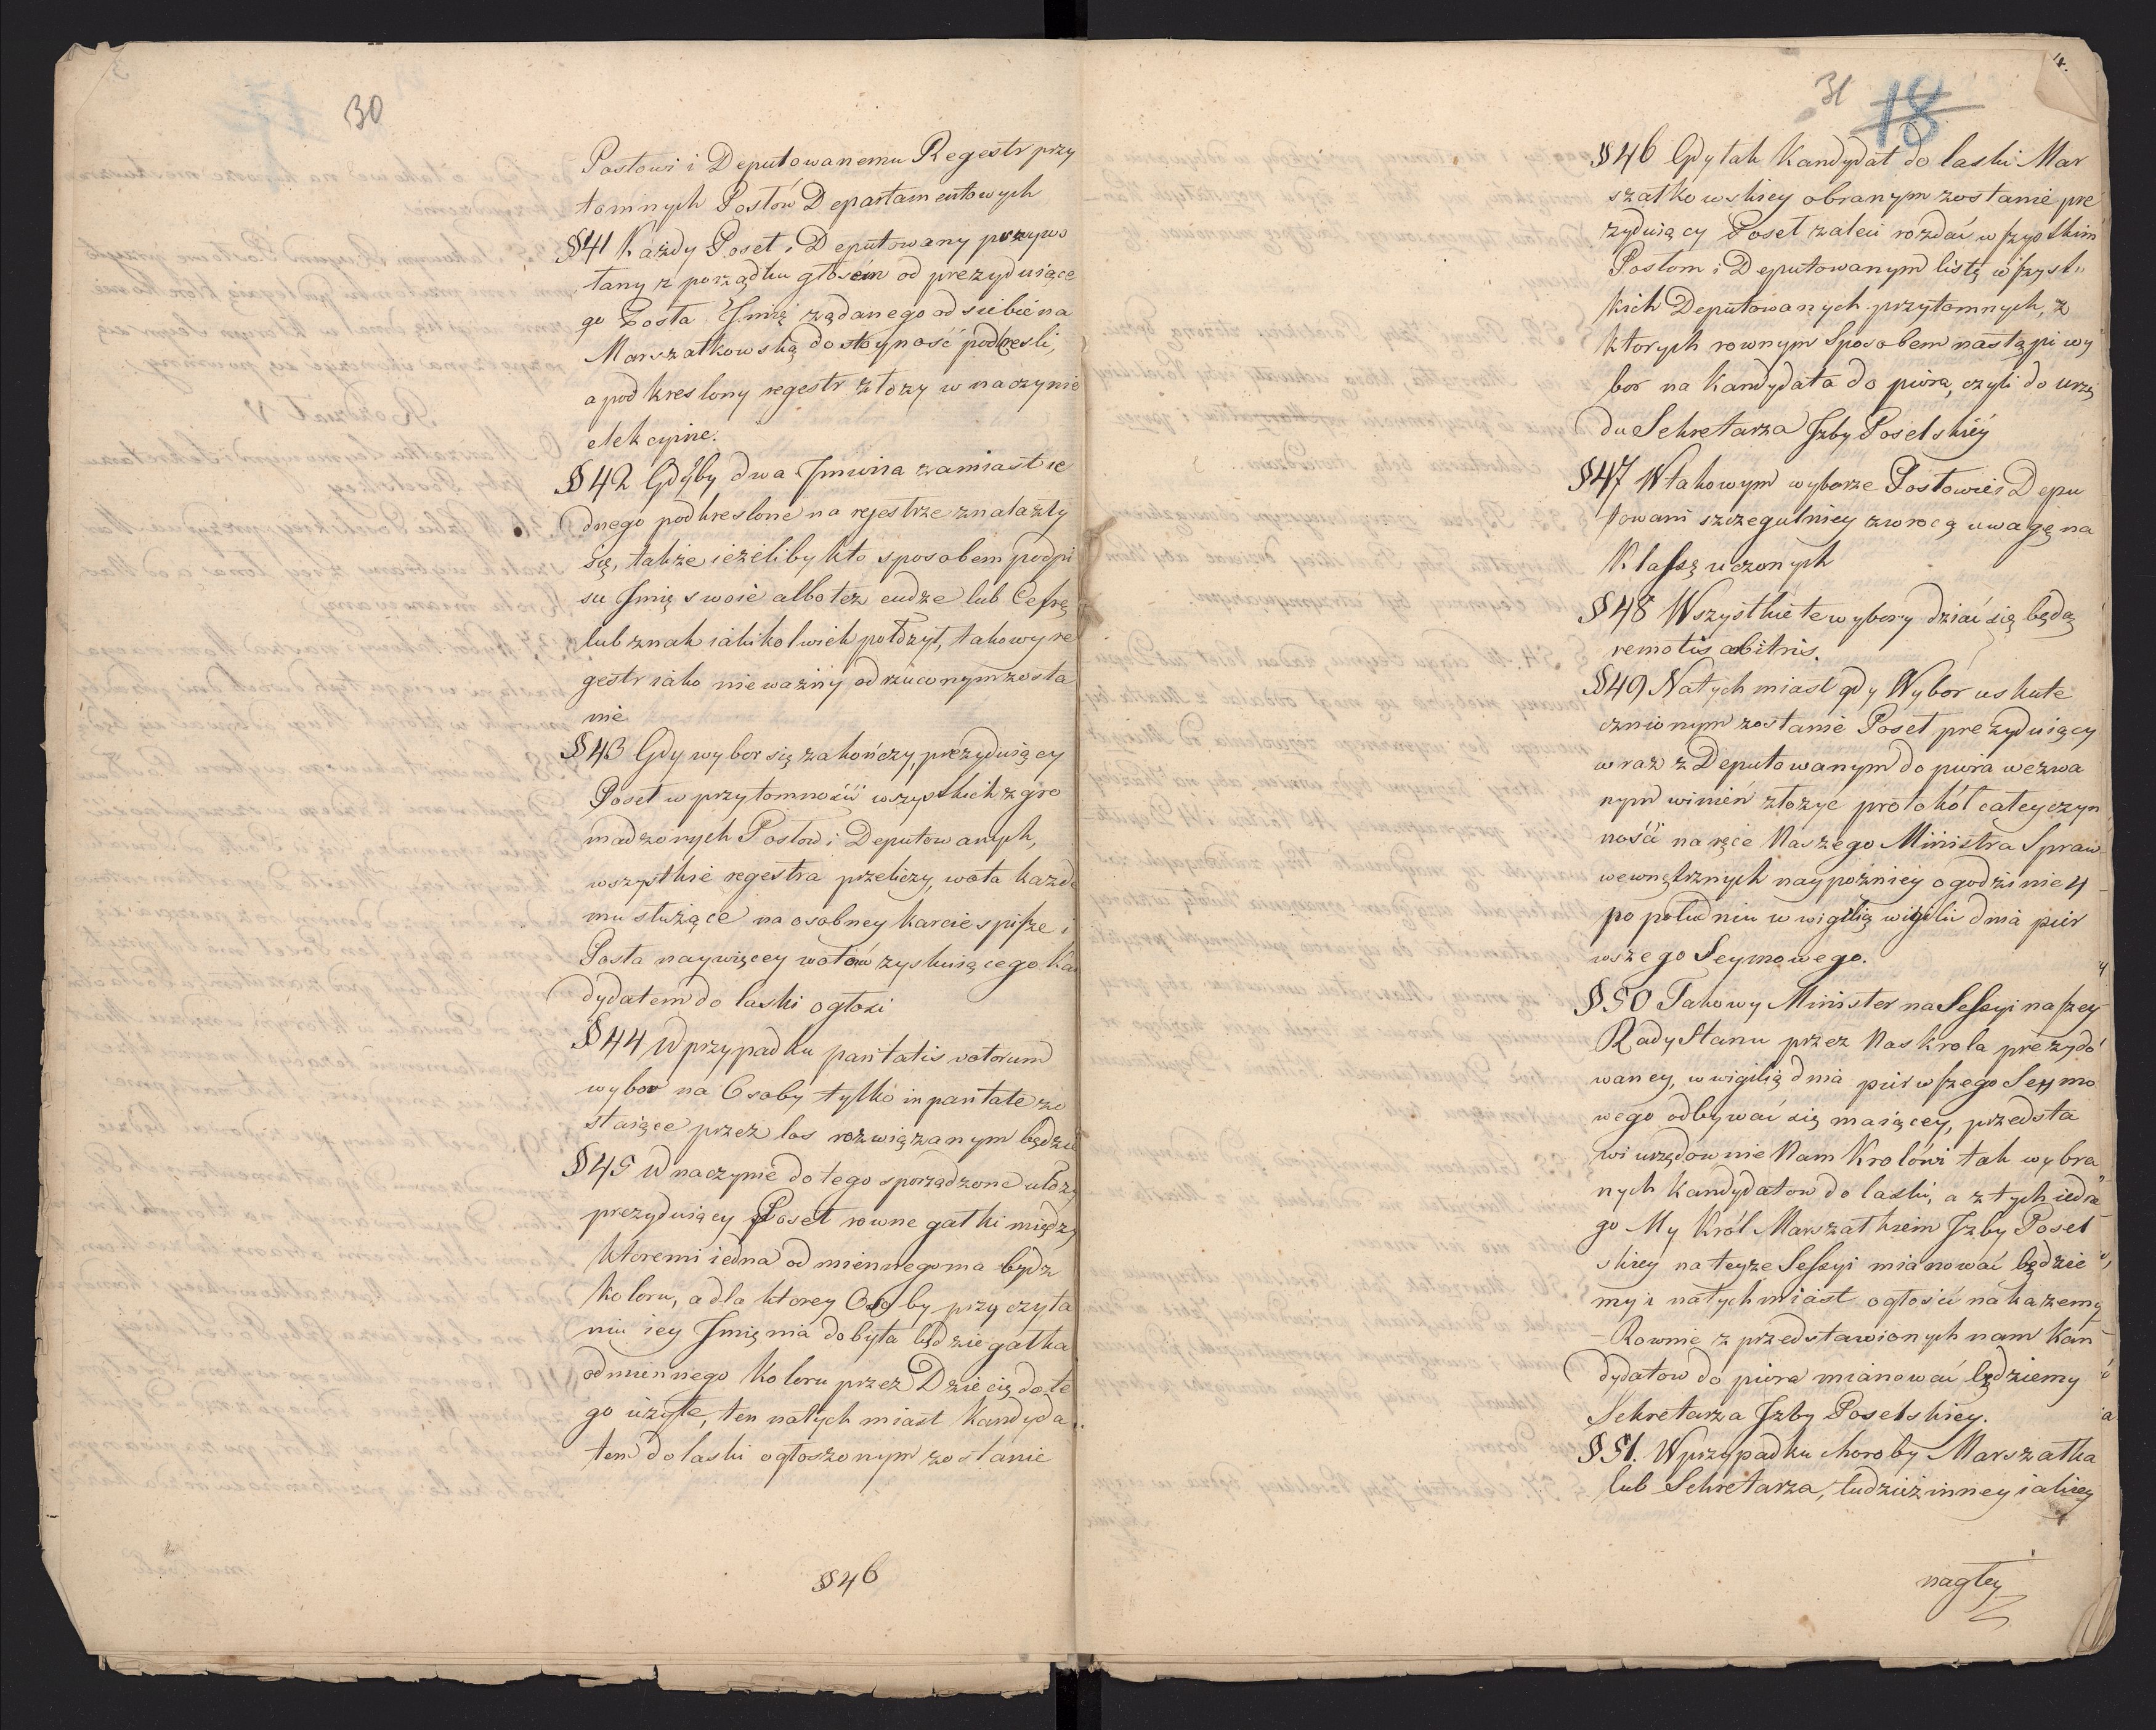 30
Posłowi i Deputowanemu Regestr przy
tomnych Posłów Departamentowych
§41 Każdy Poseł i Deputowany przywo
łany z porządku głosem od prezyduiące
go Posła Jmię żądanego od siebie na
Marszałkowską dostoyność podkreśli,
a podkreslony regestr złoży w naczynie
elekcyine.
§42 Gdyby dwa Jmiona zamiast ie
dnego podkreslone na rejestrze znalazły
się, także ieżeliby kto sposobem podpi
su Jmię swoie albo też cudze lub Cefrę
lub znak iakikolwiek położył, takowy re
gestr iako nieważny odrzuconym zosta
nie
§43 Gdy wybor się zakończy, prezyduiący
Poseł w przytomności wszystkich zgro
madzonych Posłów i Deputowanych,
wszystkie regestra przeliczy, wota każde
mu służące na osobney karcie spisze i
Posła naywięcey wotów zyskuiącego kan
dydatem do laski ogłosi
§44 W przypadku paritatis votorum
wybor na Osoby tylko in paritate zo
staiące przez los rozwiązanym będzie
§45 W naczynie do tego sporządzone włoży
prezyduiący Poseł rowne gałki między
ktoremi iedna odmiennego ma bydz
koloru, a dla ktorey Osoby przy czyta
niu iey Jmięnia dobyta będzie gałka
odmiennego koloru przez Dziecię do te
go użyte, ten natychmiast kandyda
tem do laski ogłoszonym zostanie
§46
4.
31 18
§46 Gdy tak Kandydat do laski Mar
szałkowskiey obranym zostanie pre
zyduiący Poseł zaleci rozdać wszystkim
Posłom i Deputowanym listę wszyst„
kich Deputowanych przytomnych, z
ktorych rownym sposobem nastąpi wy
bor na Kandydata do piora, czyli do urzę
du Sekretarza Jzby Poselskiéy
§47 W takowym wyborze Posłowie i Depu
towani szczegulniey zwrocą uwagę na
Klassę uczonych
§48 Wszystkie te wybory dziać się będą
remotis arbitris.
§49 Natychmiast gdy Wybór uskute
cznionym zostanie Poseł prezyduiący
wraz z Deputowanym do piora wezwa
nym winien złożyc protokół całey czyn
ności na ręce Naszego Ministra Spraw
wewnętrznych naypoźniey o godzinie 4
po południu w wigilią wigilii dnia pier
wszego Seymowego.
§50 Takowy Minister na Sessyi naszey
Rady Stanu przez Nas krola prezydo
waney, w wigilią dnia pierwszego Seymo
wego odbywać się maiącey, przedsta
wi urzędownie Nam Krolowi tak wybra
nych kandydatow do laski, a z tych iedne
go My Król Marszałkiem Jzby Posel
skiey na teyże Sessyi mianować będzie
my i natychmiast ogłosić nakażemy
– Rownie z przedstawionych nam Kan
dydatow do piora mianować będziemy
Sekretarza Jzby Poselskiey.
§51. W przypadku choroby Marszałka
lub Sekretarza, tudzież inney iakiey
nagłey